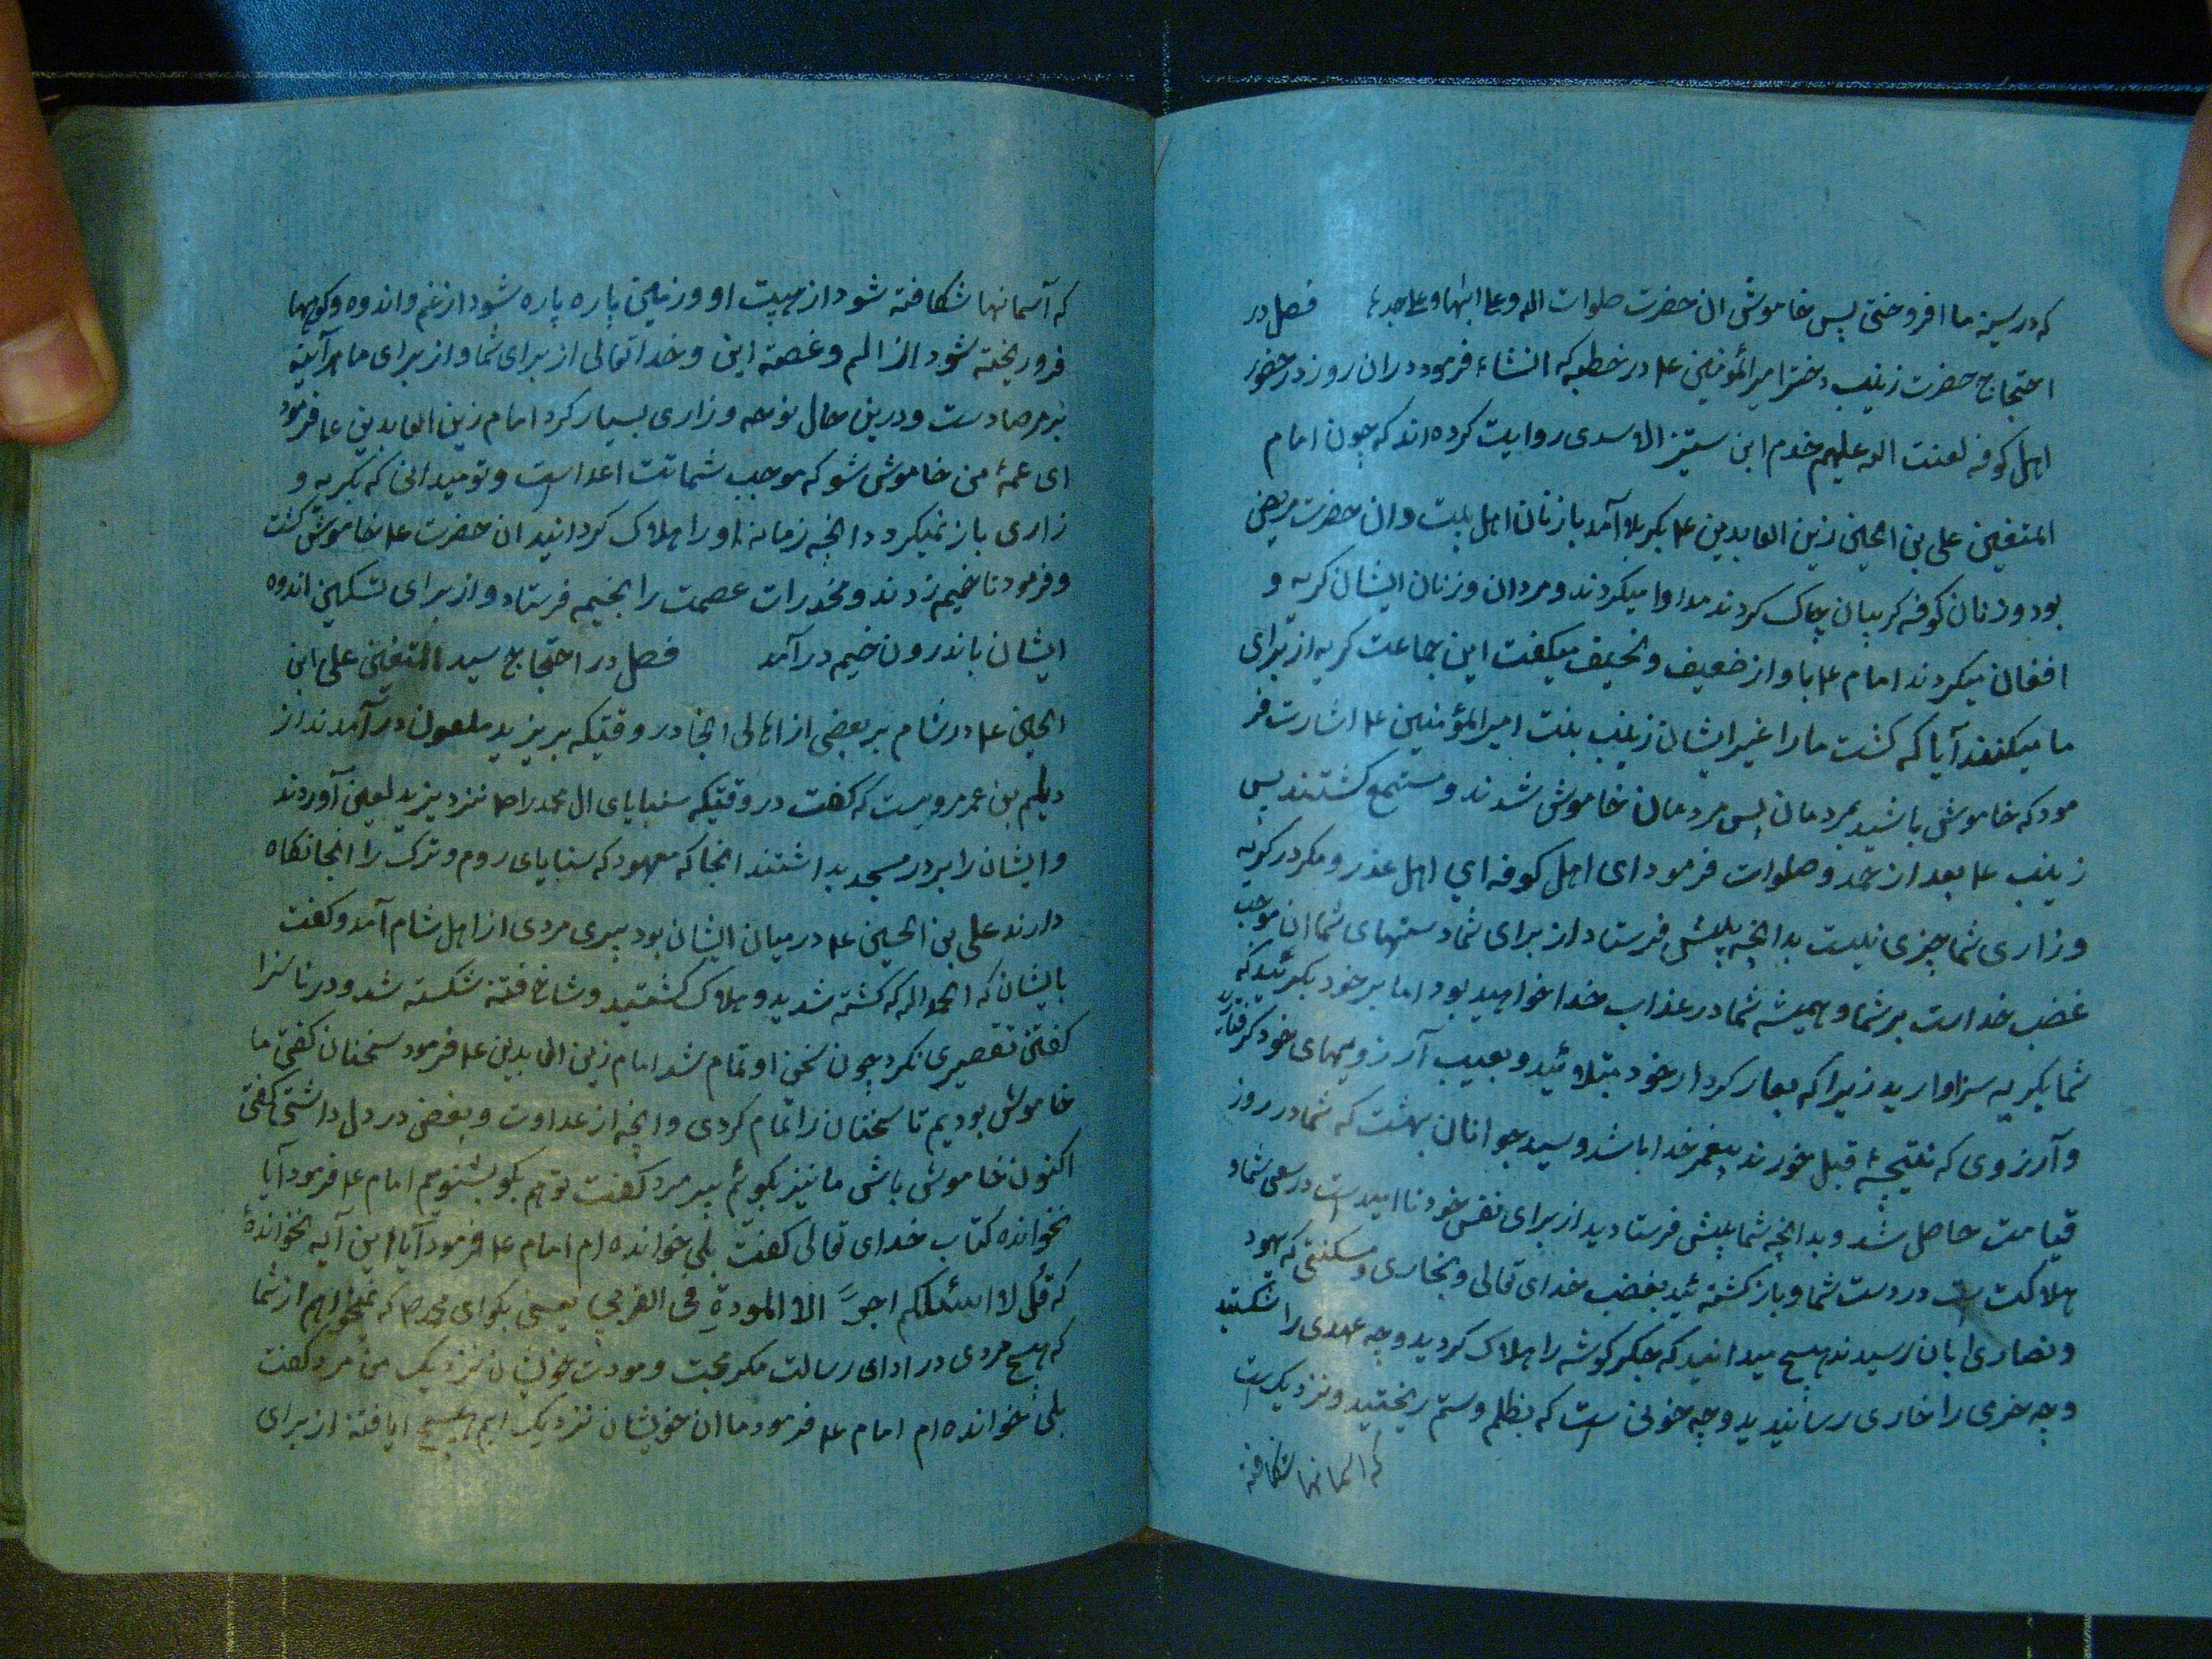 که در سینهٔ ما افروختی پس خاموش ان حضرت صلوات الله و علی ابیها و علی جدها فصل در
احتجاج حضرت زینب دختر امیرالمؤمنین ع در خطبه که انشاء فرمود دران روز در حضور
اهل کوفه لعنت الله علیهم خدم ابن ستیر الاسدی روایت کرده اند که چون امام
المتقین علی بن الحسین زین العابدین ع بکربلا آمد با زنان اهل بیت و ان حضرت مریض
بود و زنان کوفه کریبان چاک کردند مداوا میکردند و مردان و زنان ایشان کریه و
افغان میکردند امام ع باواز ضعیف و نحیف میکفت این جماعت کریه از برای
ما میکنند آیا که کشت ما را غیر ایشان زینب بنت امیرالمؤمنین ع اشارت فر
مود که خاموش باشید بمردمان پس مردمان خاموش شدند و مستمع کشتند پس
زینب ع بعد از حمد و صلوات فرمود ای اهل کوفه ای اهل عذر و مکر در کریه
و زاری شما چیزی نیست بدانچه پیش فرستاد از برای شما دستهای شما ان موجب
غضب خداست بر شما و همیشه شما در عذاب خدا خواهید بود اما بر خود بکرئید که
شما بکریه سزاوارید زیرا که بعار کردار خود مبتلائید و بعیب آرزویهای خود کرفتارید
و آرزوی که نتیجهٔ قبل خورند پیغمبر خدا باشد و سید جوانان بهشت که شما در روز
قیامت حاصل شد و بدانچه شما پیش فرستادید از برای نفس خود ناامیدست در سعی شما و
هلاکت است در دست شما و باز کشته ئید بغضب خدای تعالی و بخاری و مسکنتی که یهود
و نصاری بان رسیدند هیچ میدانید که جکر کوشه را هلاک کردید و چه عهدی را شکستید
و چه حری را خاری رسانیدید و چه خونی است که بظلم و ستم ریختید و نزدیکست
که اسمانها شکافته
که آسمانها شکافته شود از هیبت او و زمین پاره پاره شود از غم و اندوه و کوهها
فرو ریخته شود از الم و غصهٔ این و خدا تعالی از برای شما و از برای ما هرآینه
بر مرصادست و درین حال نوحه و زاری بسیار کرد امام زین العابدین ع فرمود
ای عمهٔ من خاموش شو که موجب شماتت اعداست و تو میدانی که بکریه و
زاری باز نمیکردد انچه زمانه او را هلاک کردانید ان حضرت ع خاموش کشت
و فرمود تا خیم زدند و مخدرات عصمت را بخیم فرستاد و از برای تسکین اندوه
ایشان باندرون خیم درآمد فصل در احتجاج سید المتقین علی ابن
الحسین ع در شام بر بعضی از اهالی انجا در وقتیکه بر یزید ملعون درآمدند از
دیلم بن عمر مرویست که کفت در وقتیکه سبایای ال محمد را ص نزد یزید لعین آوردند
و ایشان را بر در مسجد بداشتند انجا که معهود که سبایای روم و ترک را انجا نکاه
دارند علی بن الحسین ع در میان ایشان بود پیری مردی از اهل شام آمد و کفت
بایشان که الحمد الله که کشته شدید و هلاک کشتید و شاخ فتنه شکسته شد و در ناسزا
کفتن تقصیری نکرد چون سخن او تمام شد امام زین العابدین ع فرمود سخنان کفتی ما
خاموش بودیم تا سخنان را تمام کردی و انچه از عداوت و بغض در دل داشتی کفتی
اکنون خاموش باش ما نیز بکوئم پیر مرد کفت تو هم بکو بشنویم امام ع فرمود آیا
نخوانده کتاب خدای تعالی کفت بلی خوانده ام امام ع فرمود آیا این آیه نخواندهٔ
که قُل لا اسئلکم اجراً الا المودةِ فی القربی یعنی بکو ای محمد ص که نمیخواهم از شما
که هیچ مردی در ادای رسالت مکر محبت و مودت خویشان نزدیک من مرد کفت
بلی خوانده ام امام ع فرمود ما ان خویشان نزدیک ایم هیچ آیا یافتهٔ از برای